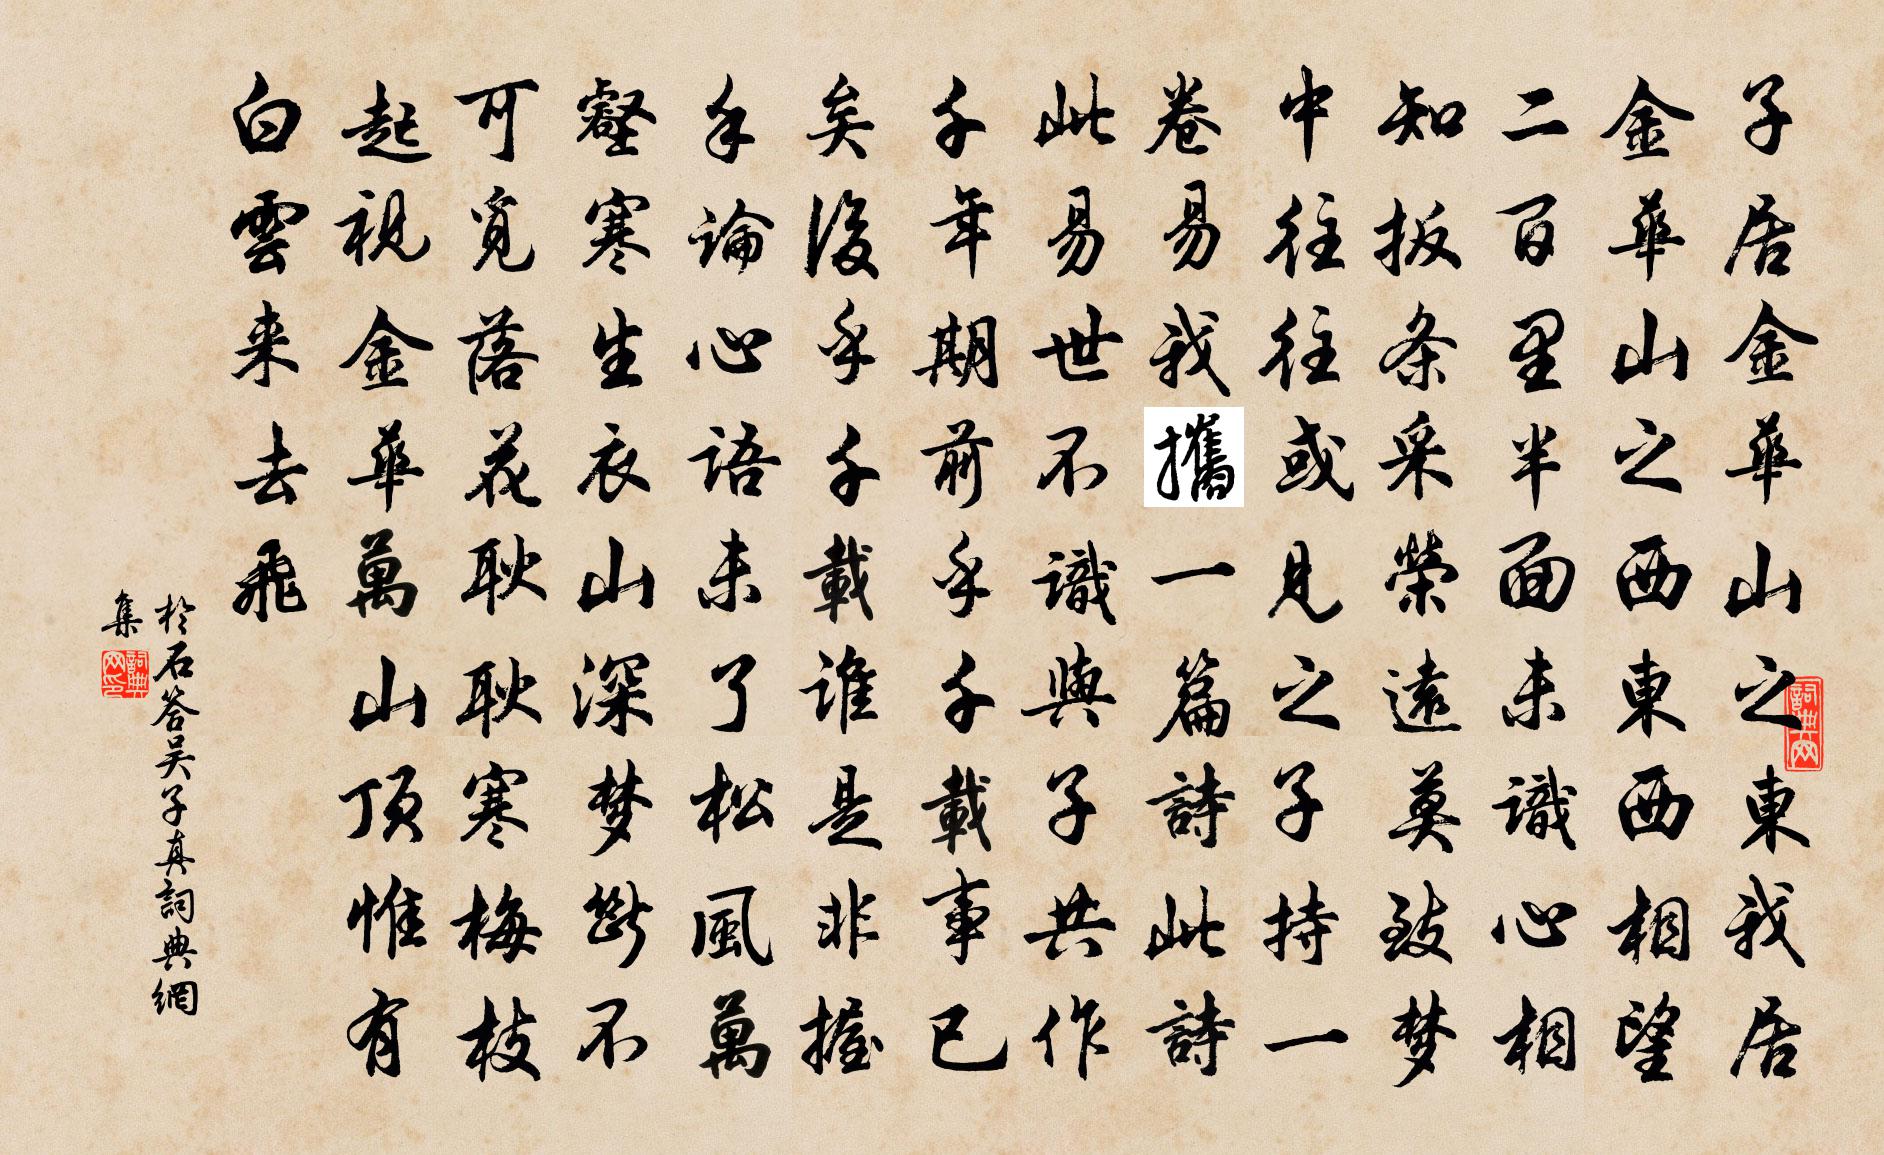 子居金華山之東我居
金華山之西東西相望
二百里半面未識心相
知扳条采榮遠莫致梦
中往往或見之子持一
卷易我攜一篇詩此詩
此易世不識與子共作
千年期前乎千載事已
矣後乎千載誰是非握
手論心語未了松風萬
壑寒生衣山深梦斷不
可覓落花耿耿寒梅枝
起視金華萬山頂惟有
白雲来去飛
於石答吴子真詞典網
集
詞典网印
詞典网